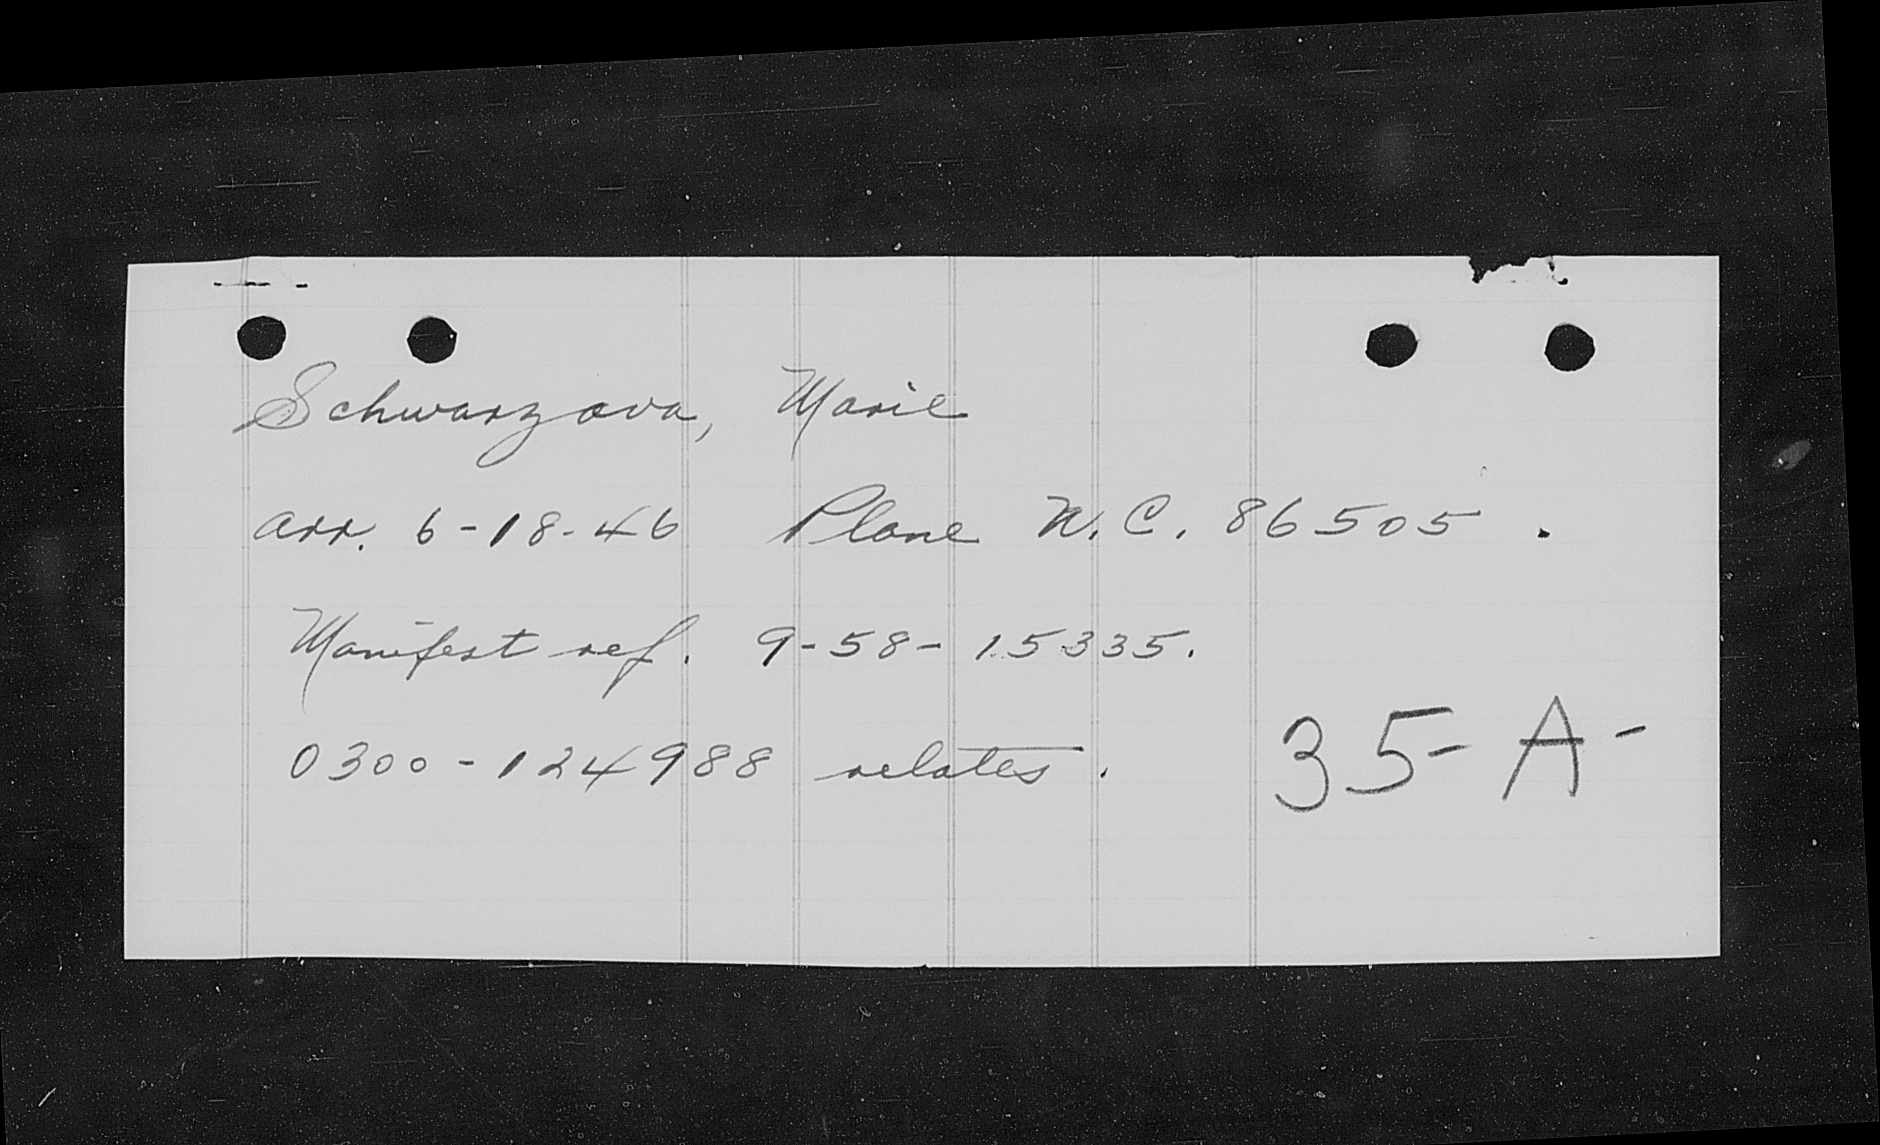 Schwarzova, Marie
arr. 6-18-46 Plane N.C. 86505.
Manifest ref. 9-58-15335.
0300-124988 relates.
35-A-